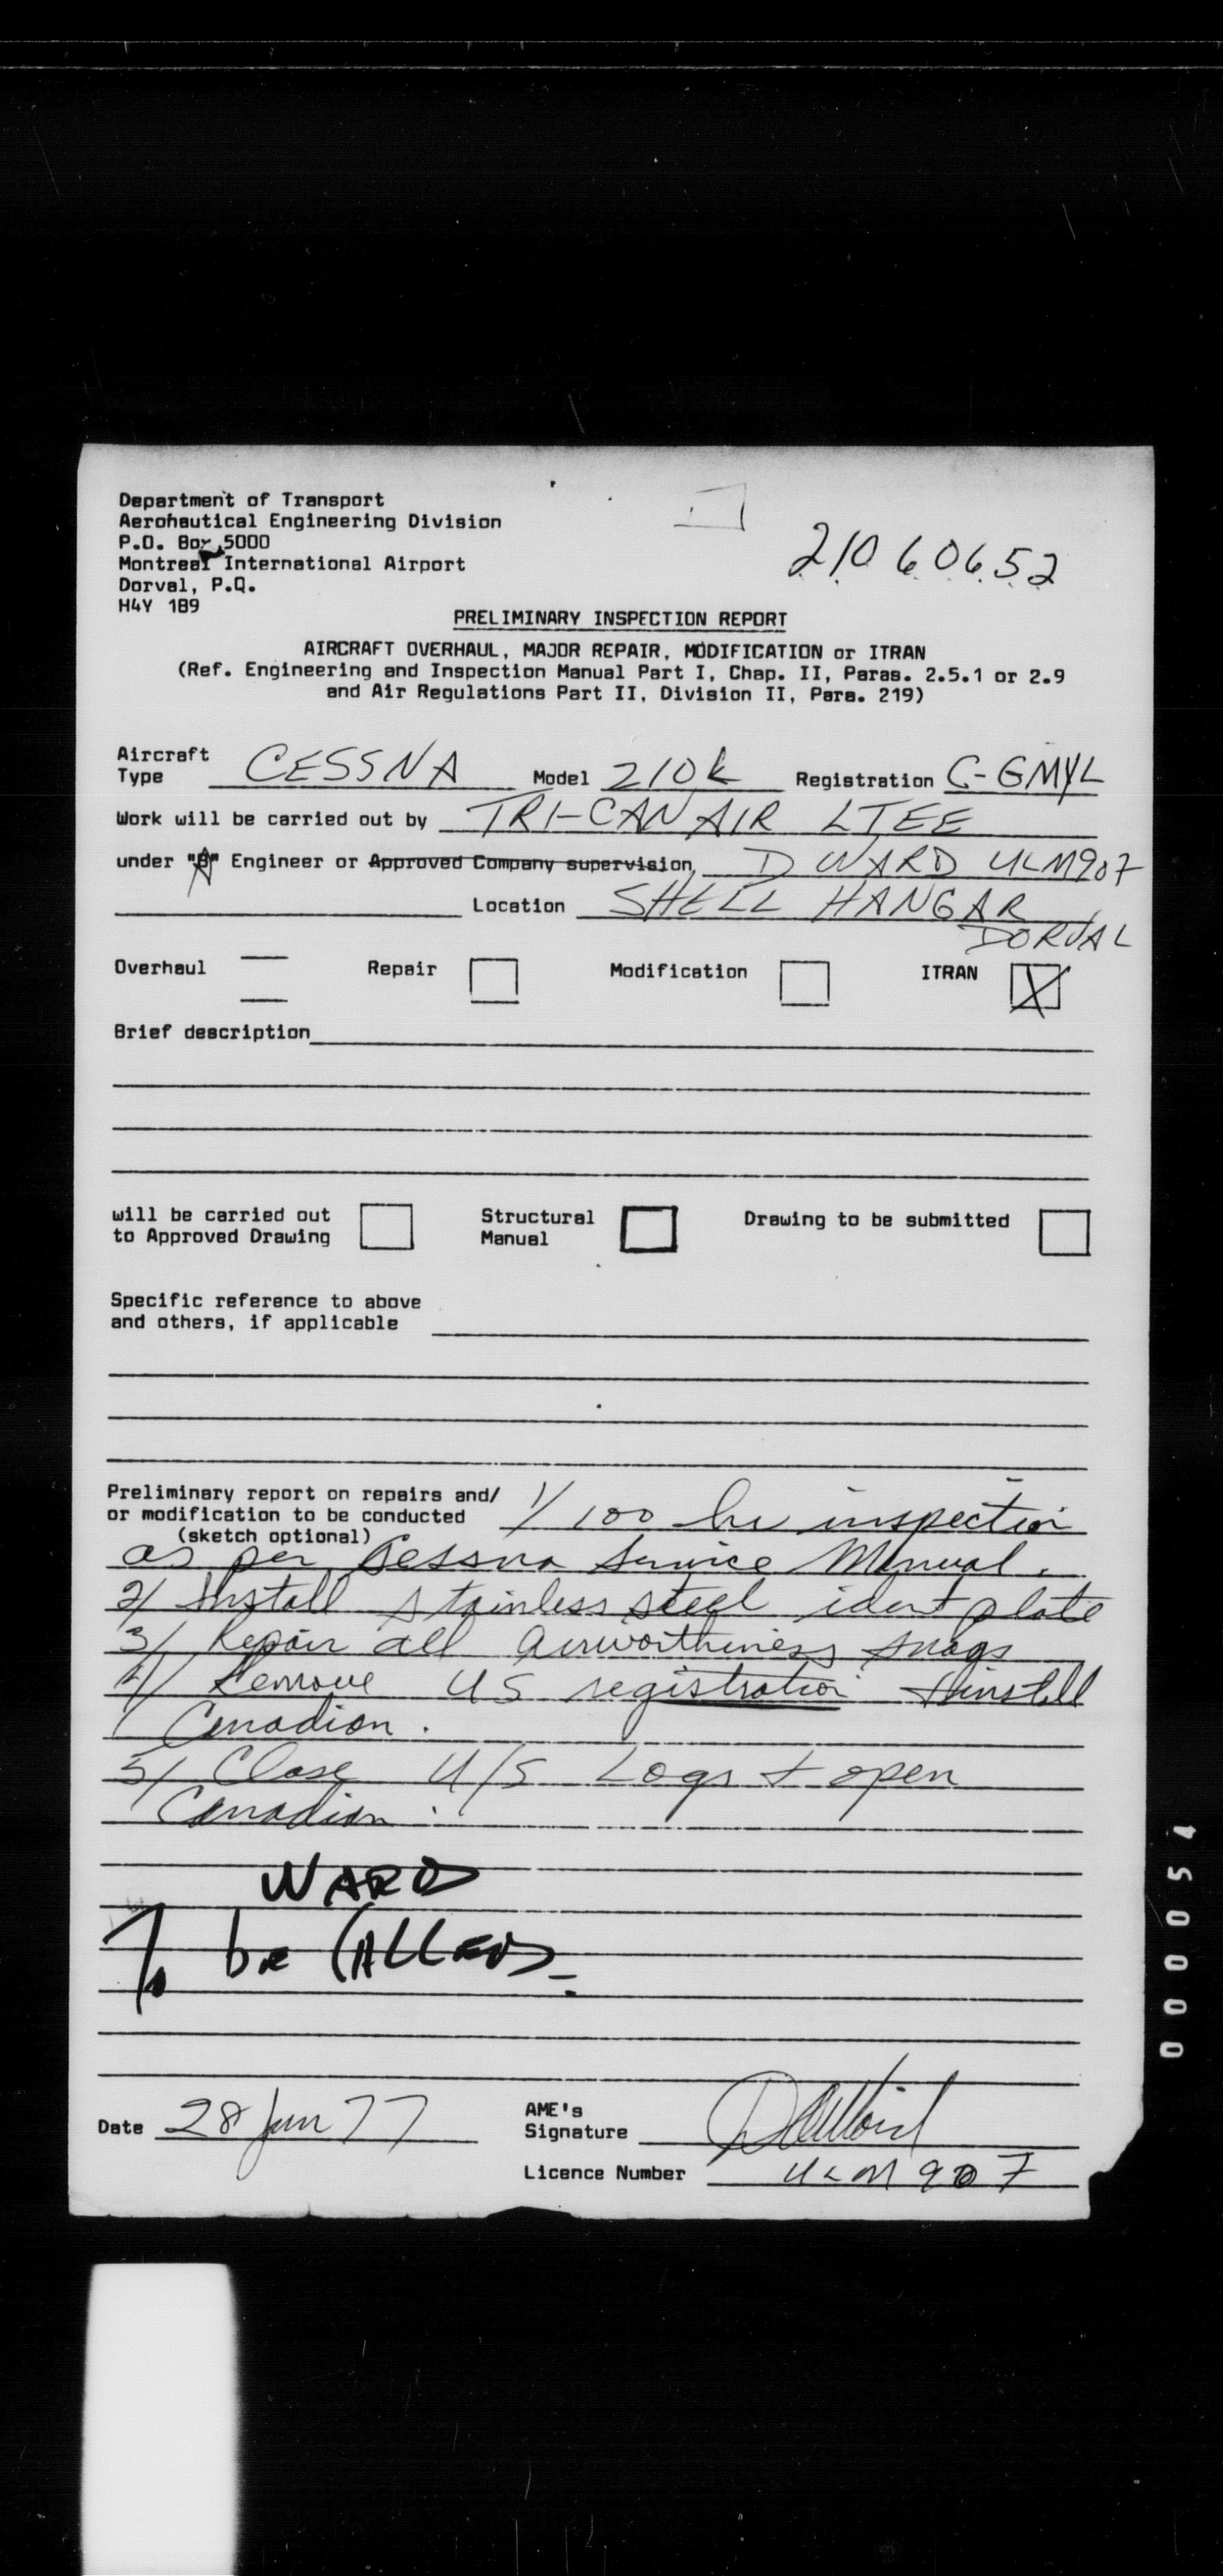 Department of Transport
Aeronautical Engineering Division
P.O. Box 5000
Montreal International Airport
Dorval, P.Q.
H4Y 1B9
21060652
PRELIMINARY INSPECTION REPORT
AIRCRAFT OVERHAUL, MAJOR REPAIR, MODIFICATION or ITRAN
(Ref. Engineering and Inspection Manual Part I, Chap. II, Paras. 2.5.1 or 2.9
and Air Regulations Part II, Division II, Para. 219)
Aircraft Type CESSNA Model 210K Registration C-GMYL
Work will be carried out by TRI-CAN AIR LTEE
under "A" Engineer or Approved Company supervision, D WARD ULM907
Location SHELL HANGAR
DORVAL
Overhaul Repair Modification ITRAN X
Brief description
will be carried out
to Approved Drawing
Structural
Manual
Drawing to be submitted
Specific reference to above
and others, if applicable
Preliminary report on repairs and/
or modification to be conducted
(sketch optional)
1/ 100 hr inspection
as per Cessna Service Manual.
2/ Install stainless steel ident plate
3/ Repair all airworthiness snags
4/ Remove US registration + install
Canadian.
5/ Close U/S Logs + open
Canadian.
WARD
To be CALLED
Date 28 Jun 77
AME's
Signature
Licence Number ULM 907
000054